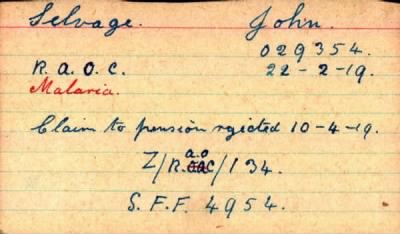 Selvage. John.
029354.
R.A.O.C. 22-2-19.
Malaria.
Claim to pension rejected 10-4-19.
Z/R.A.O.C/134.
S.F.F. 4954.